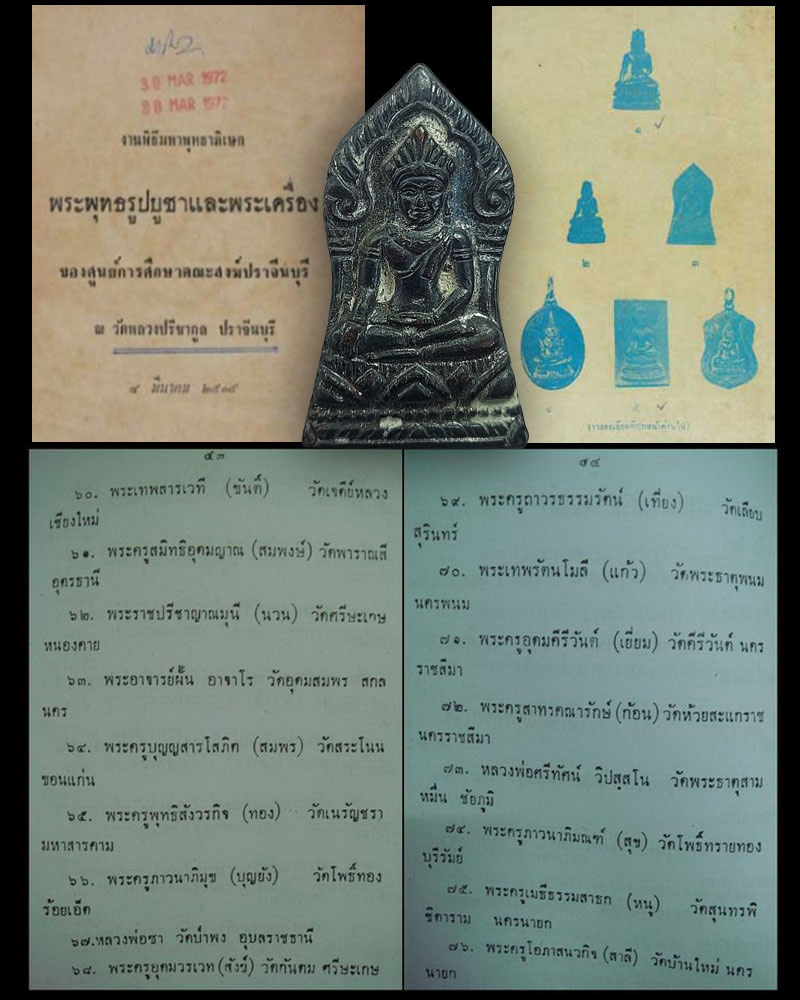 30 MAR 1972
งานพิธีมหาพุทธาภิเษก
พระพุทธรูปบูชาและพระเครื่อง
ของศูนย์การศึกษาคณะสงฆ์ปราจีนบุรี
ณ วัดหลวงปรีชากูล ปราจีนบุรี
๔ มีนาคม
๑
๒
๓
๔
๕
๔๓
๖๐. พระเทพสารเวที (ขันติ์) วัดเจดีย์หลวง
เชียงใหม่
๖๑. พระครูสมิทธิอุดมญาณ (สมพงษ์) วัดพาราณสี
อุดรธานี
๖๒. พระราชปรีชาญาณมุนี (นวน) วัดศรีษะเกษ
หนองคาย
๖๓. พระอาจารย์ฝั้น อาจาโร วัดอุดมสมพร สกล
นคร
๖๔. พระครูบุญญสารโสภิต (สมพร) วัดสระโนน
ขอนแก่น
๖๕. พระครูพุทธิสังวรกิจ (ทอง) วัดเนรัญชรา
มหาสารคาม
๖๖. พระครูภาวนาภิมุข (บุญยัง) วัดโพธิ์ทอง
ร้อยเอ็ด
๖๗.หลวงพ่อชา วัดป่าพง อุบลราชธานี
๖๘. พระครูยุคมวรเวท (สังข์) วัดกันตม ศรีษะเกษ
๗๔
๖๙. พระครูถาวรธรรมรัตน์ (เที่ยง) วัดเลียบ
สุรินทร์
๗๐. พระเทพรัตนโมลี (แก้ว) วัดพระธาตุพนม
นครพนม
๗๑. พระครูอุดมคีรีวันต์ (เยี่ยม) วัดคีรีวันต์ นคร
ราชสีมา
๗๒. พระครูสาทรคณารักษ์ (ก้อน) วัดห้วยสะแกราช
นครราชสีมา
๗๓. หลวงพ่อศรีทัศน์ วิปสฺสโน วัดพระธาตุสาม
หมื่น ชัยภูมิ
๗๔. พระครูภาวนาภิมณฑ์ (สุข) วัดโพธิ์ทรายทอง
บุรีรัมย์
๗๕. พระครูเมธีธรรมสาธก (หนู) วัดสุนทรพิ
ชิตาราม นครนายก
๗๖. พระครูโอภาสนวกิจ (สาลี) วัดบ้านใหม่ นคร
นายก